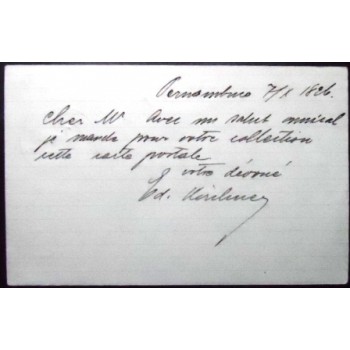 Pernambuco 7/X 1896.
Cher Mr Avec un salut amical
je mande pour votre collection
cette carte postale
E votre dévoué
Ed.